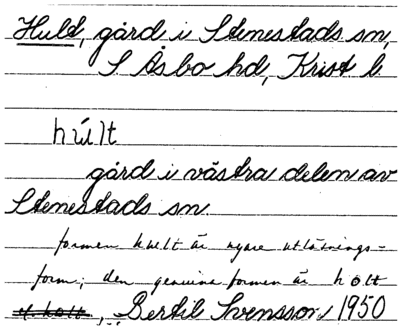 Huld, gård i Stenestads sn,
S Åsbo hd, Krist l.
hu̇lt
gård i västra delen av
Stenestads sn
formen hult är nyare uttalnings-
form; den genuina formen är holt
Bertil Svensson 1950